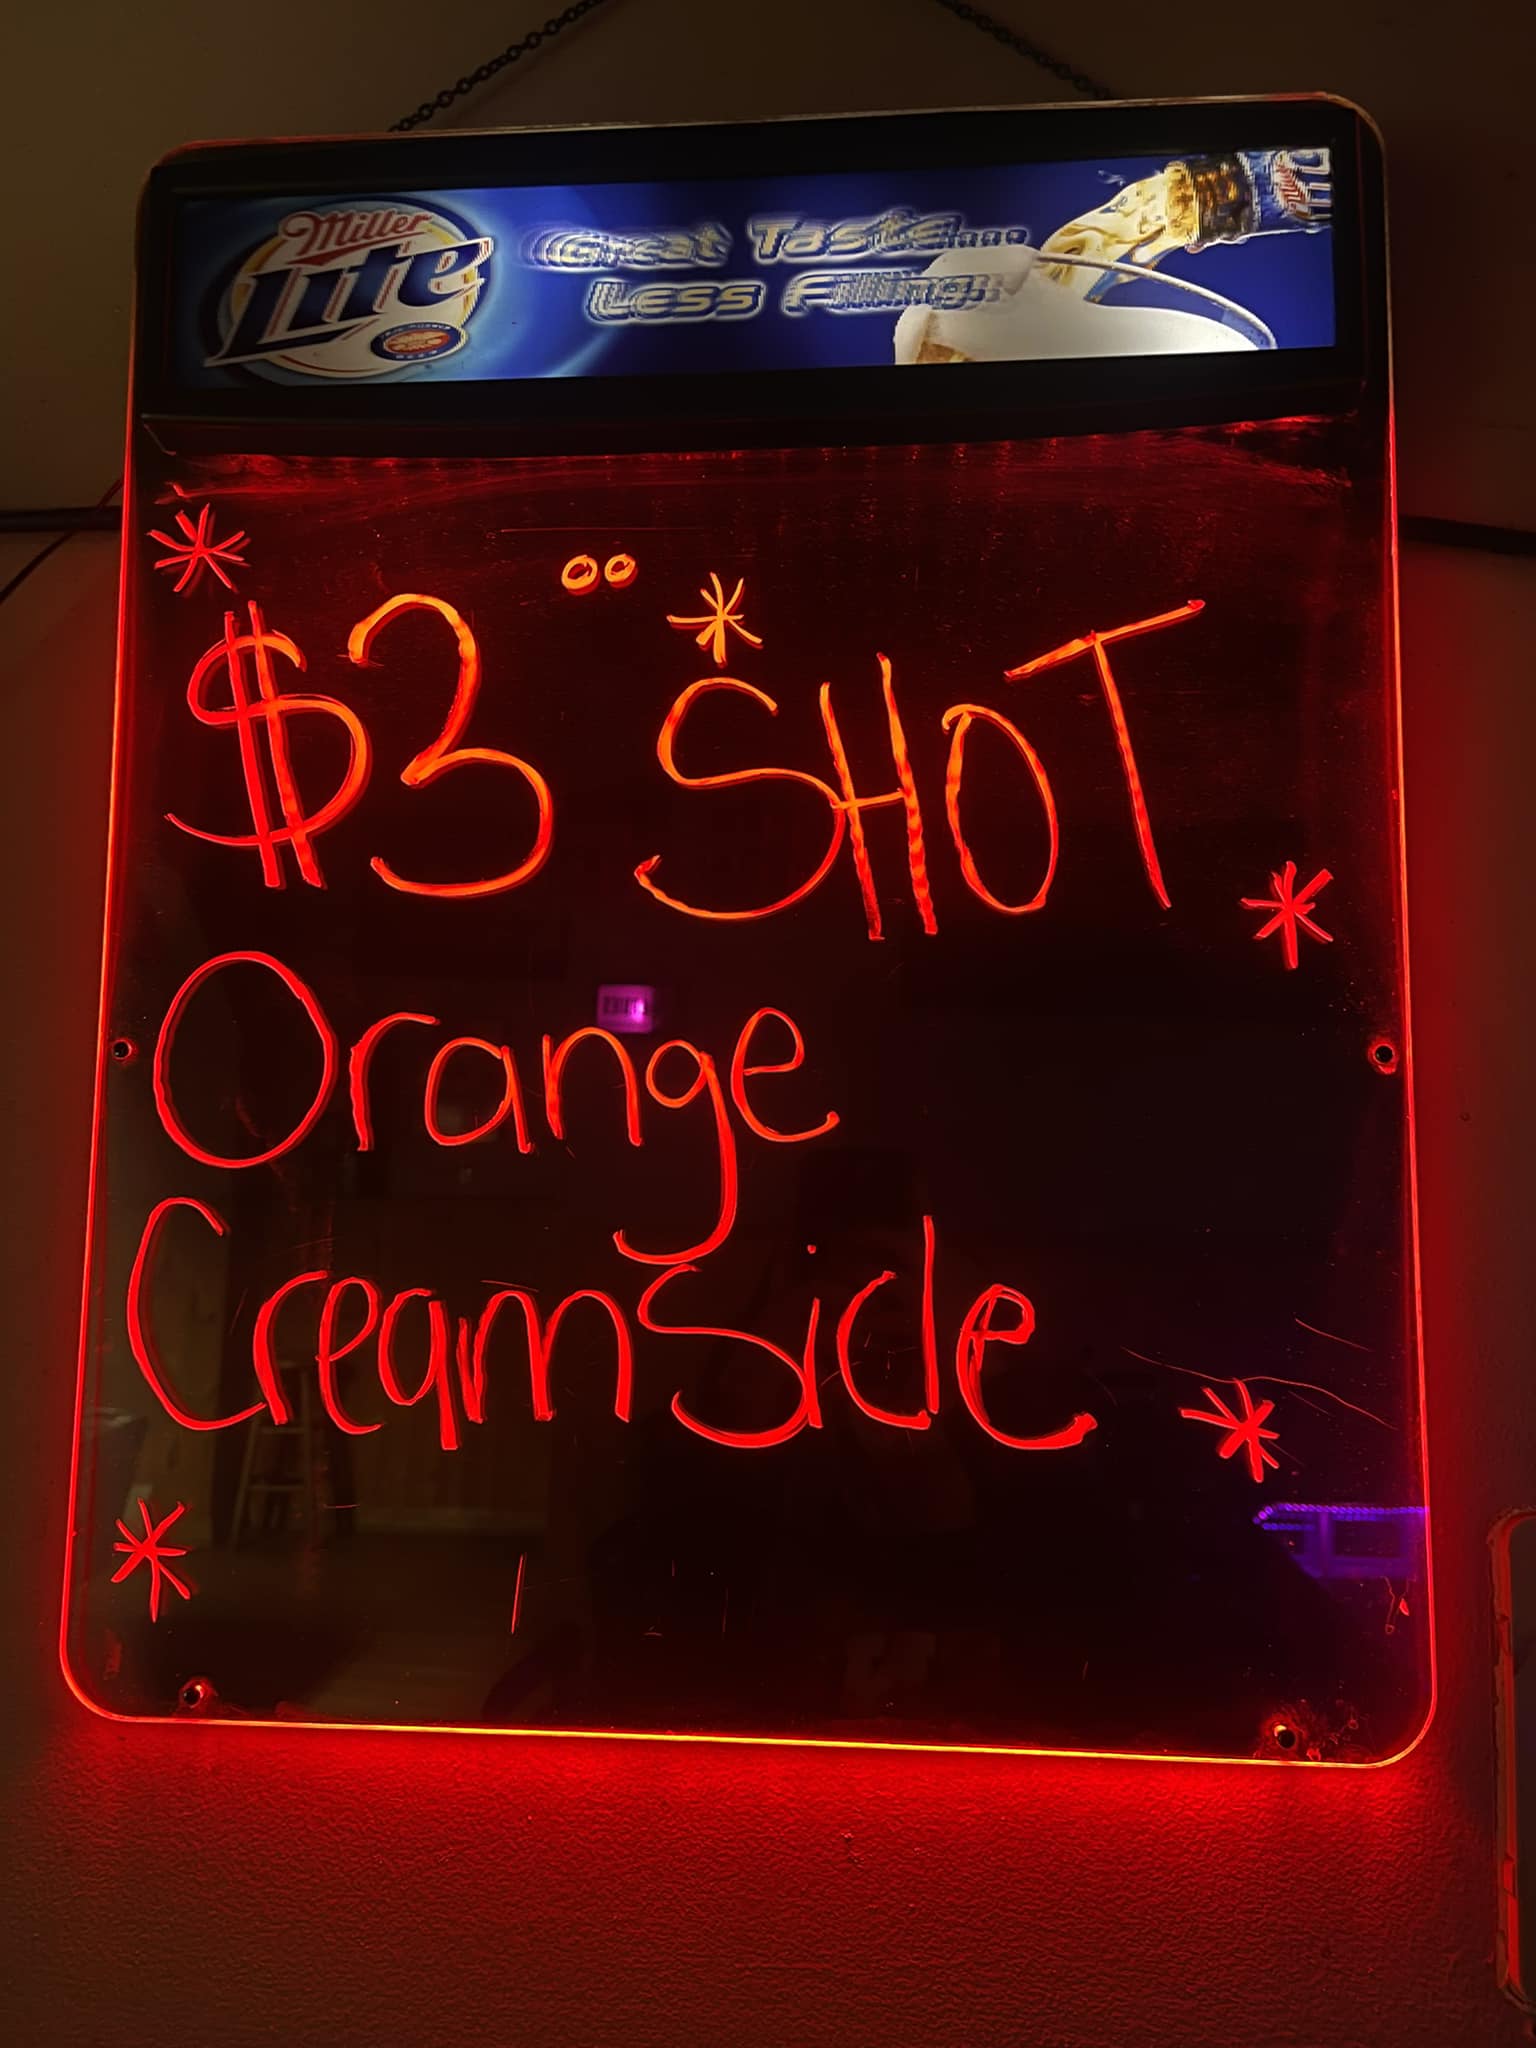 Miller
Lite
Great Taste....
Less Filling.
$3⁰⁰ SHOT
Orange
Creamside